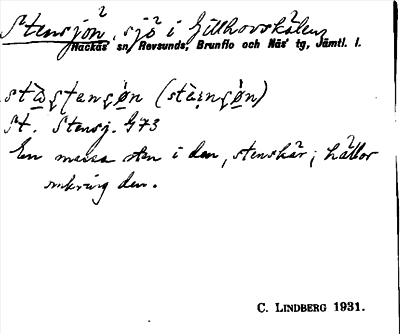 Stensjön, sjö i Gillhovskölen
Hackås sn, Revsunds, Brunflo och Näs' tg, Jämtl. l.
St. Stensj. G73
En massa sten i den, stenskär; hällor
omkring den.
C. LINDBERG 1931.